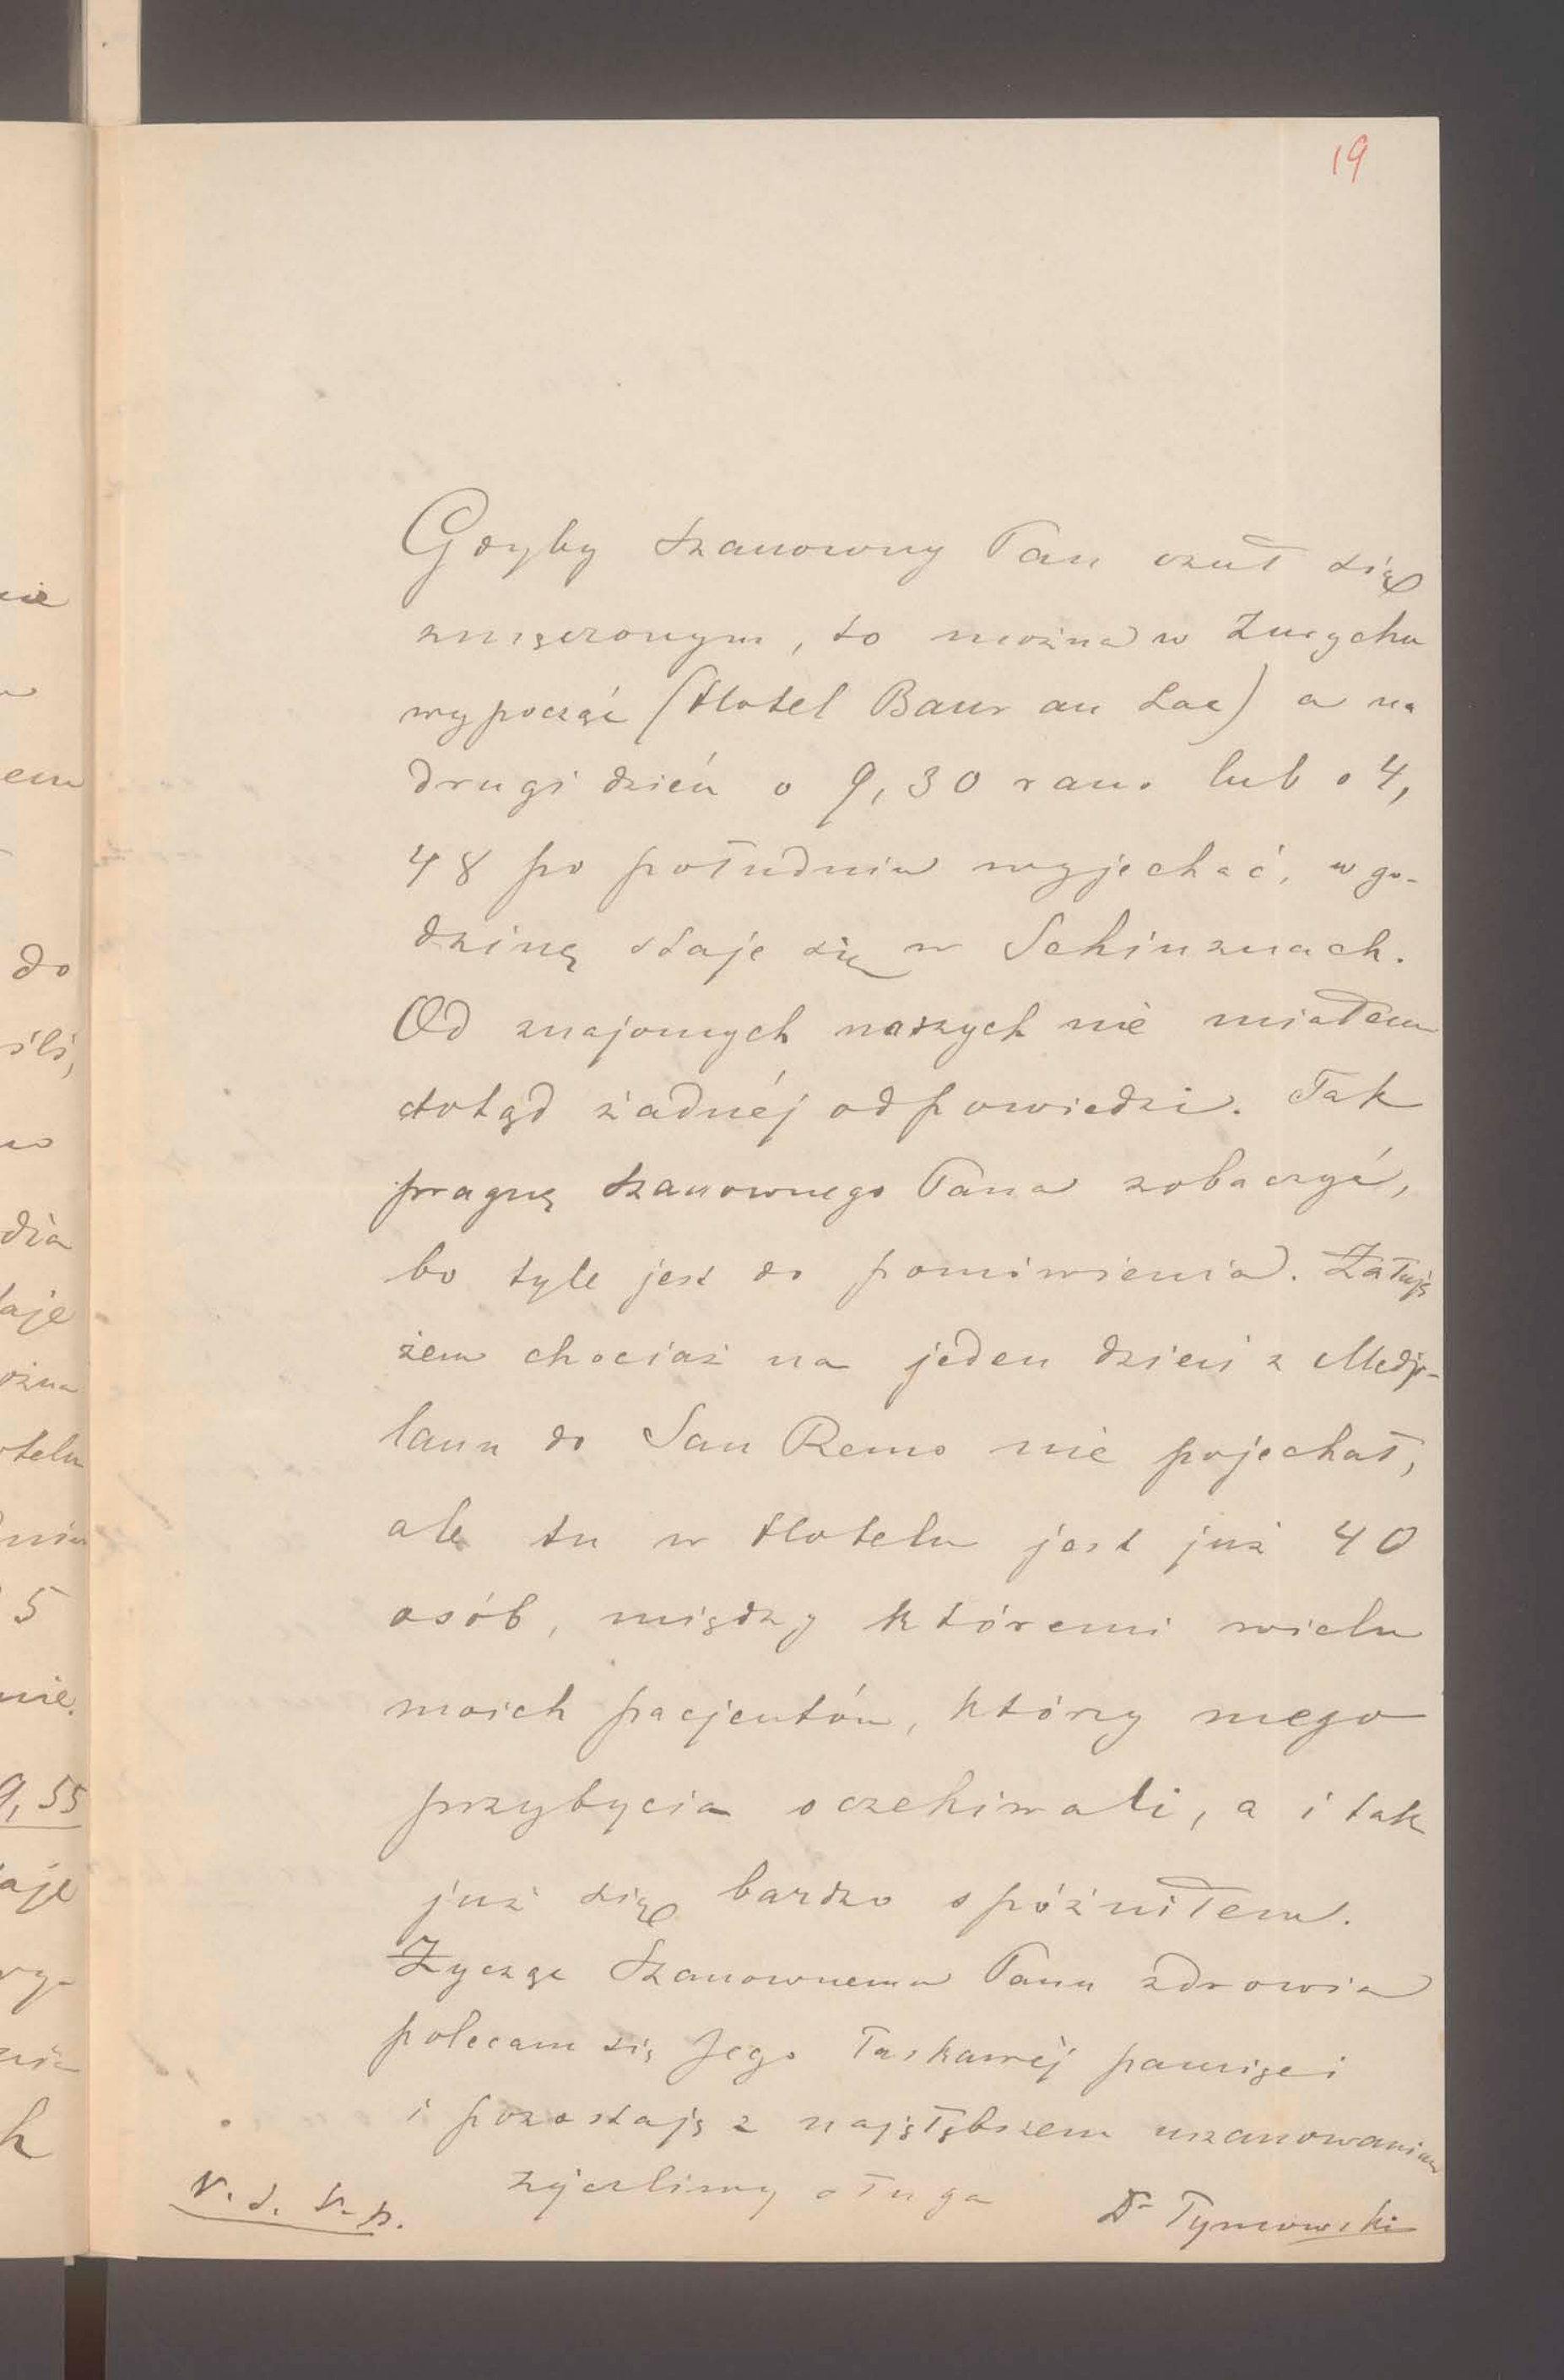 19
Gdyby Szanowny Pan czuł się
zmęczonym, to można w Zurychu
wypocząć (Hotel Baur au Lac) a na
drugi dzień o 9,30 rano lub o 4,
48 po południu wyjechać, w go-
dzinę staje się w Schinznach.
Od znajomych naszych nie miałem
dotąd żadnéj odpowiedzi. Tak
pragnę Szanownego Pana zobaczyć,
bo tyle jest do pomówienia. Żałuję
żem chociaż na jeden dzień z Medjo-
lanu do San Remo nie pojechał,
ale tu w Hotelu jest już 40
osób, między któremi wielu
moich pacjentów, którzy mego
przybycia oczekiwali, a i tak
już się bardzo spóźniłem.
Życząc Szanownemu Panu zdrowia
polecam się Jego łaskawéj pamięci
i pozostaję z najgłębszem uszanowaniem
życzliwy sługa Dr Tymowski
ie
em
do
śli,
dia
aje
ożna
telu
5
nie.
9,55
aje
h